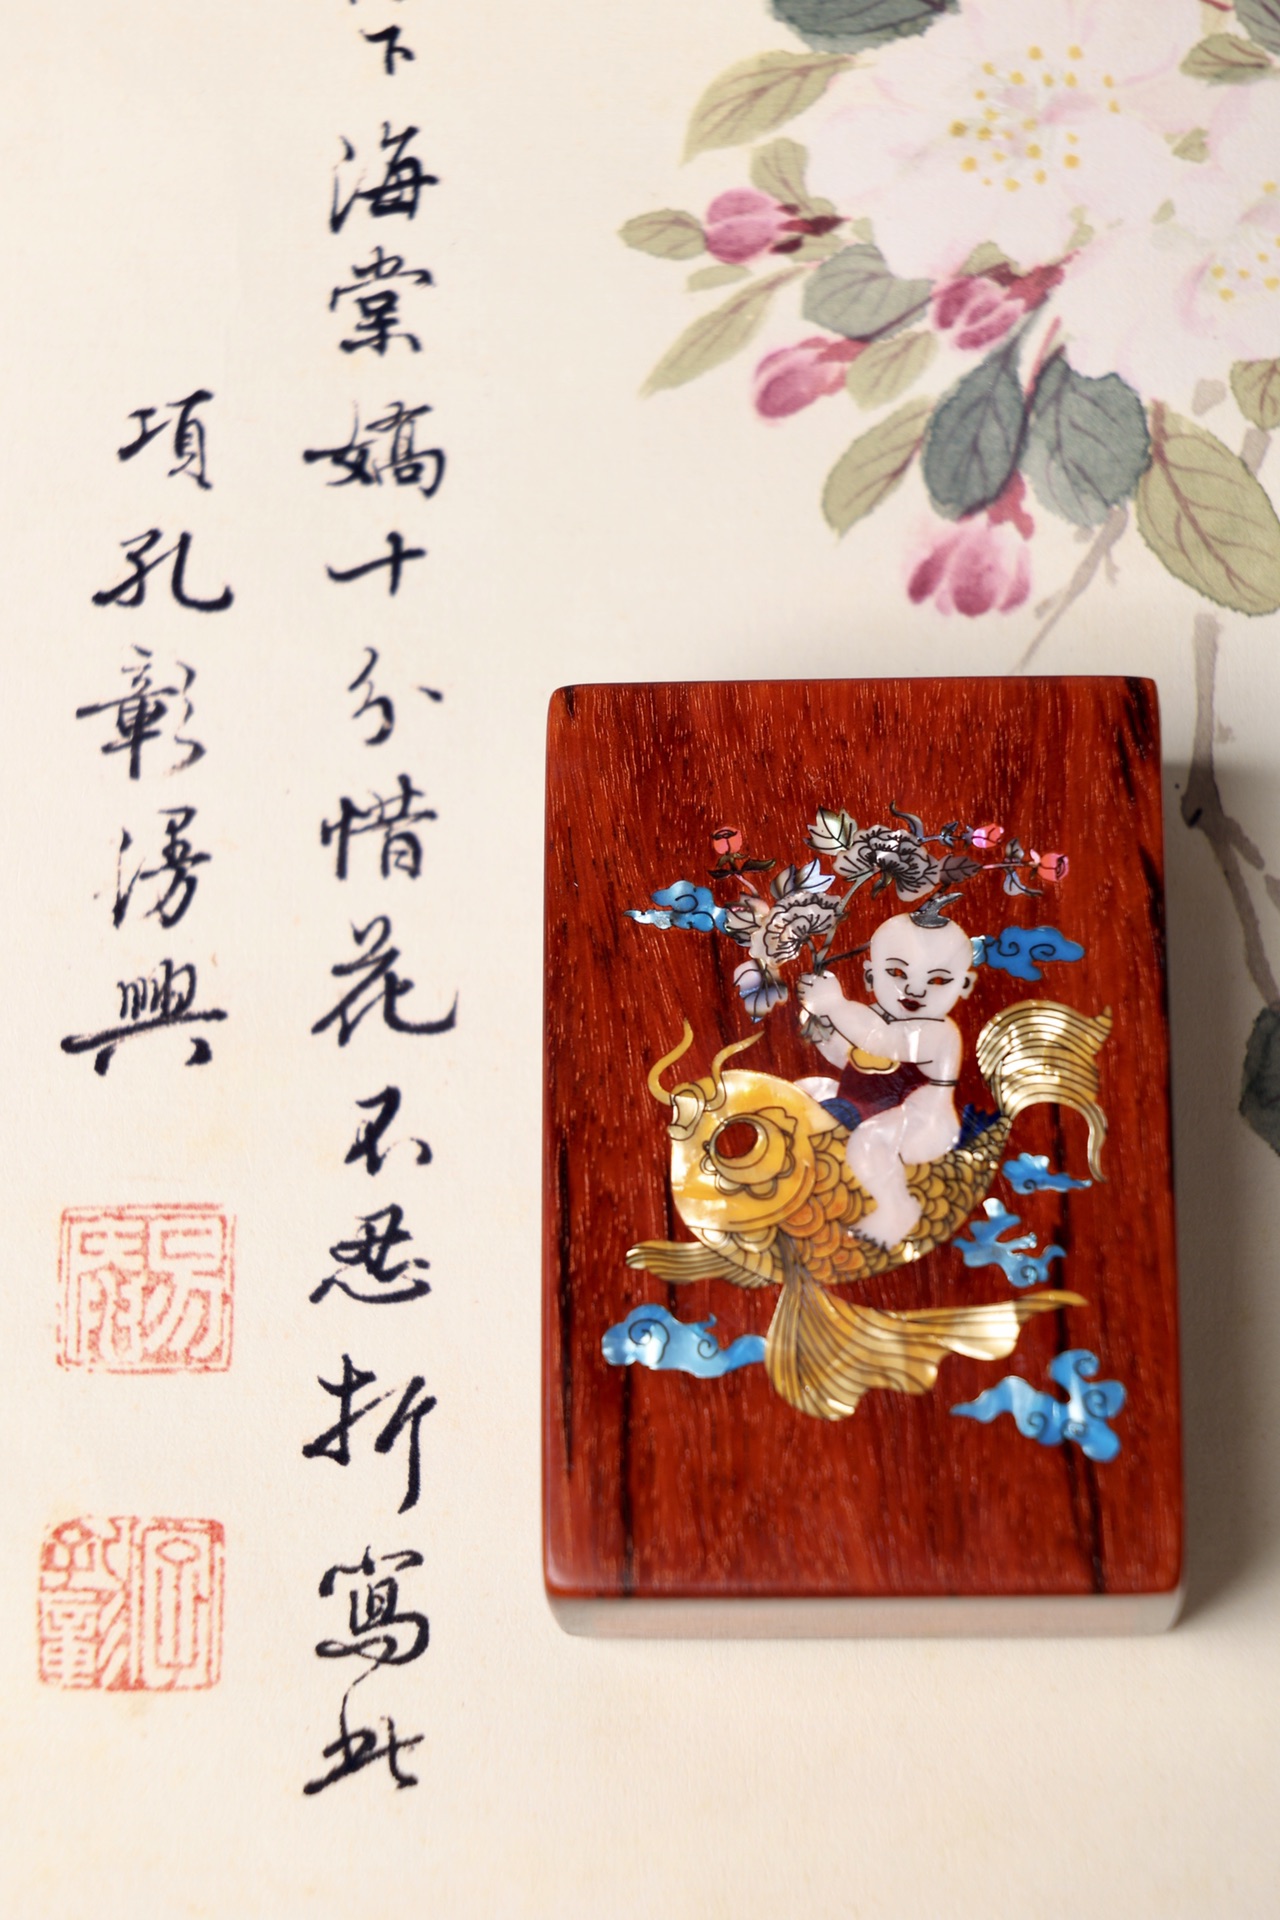 下海棠嬌十分惜花不忍折寫此
項孔彰漫興